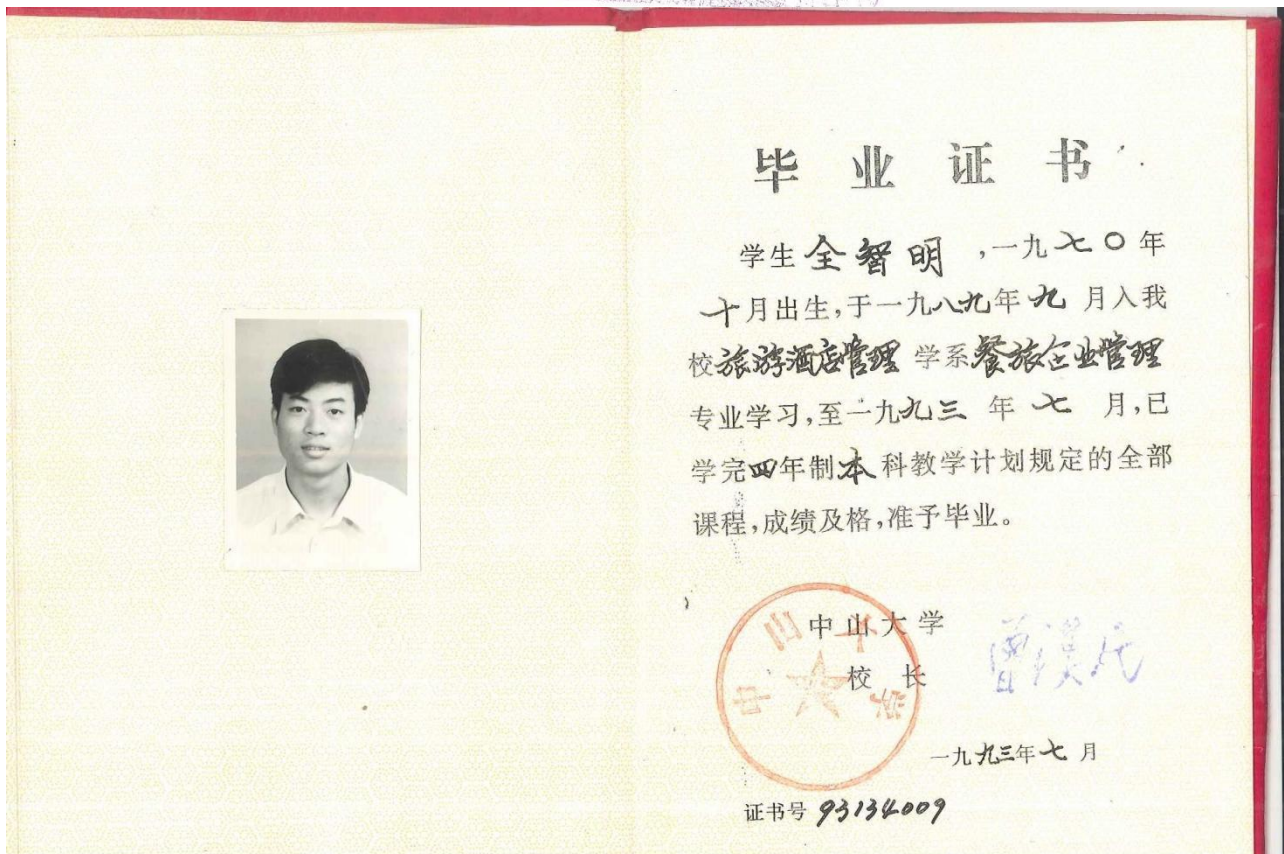 毕业证书
学生全智明,一九七〇年
十月出生,于一九八九年九月入我
校旅游酒店管理学系餐旅企业管理
专业学习,至一九九三年七月,已
学完四年制本科教学计划规定的全部
课程,成绩及格,准予毕业。
中山大学
中山大学
校长 曾汉民
一九九三年七月
证书号 93134009